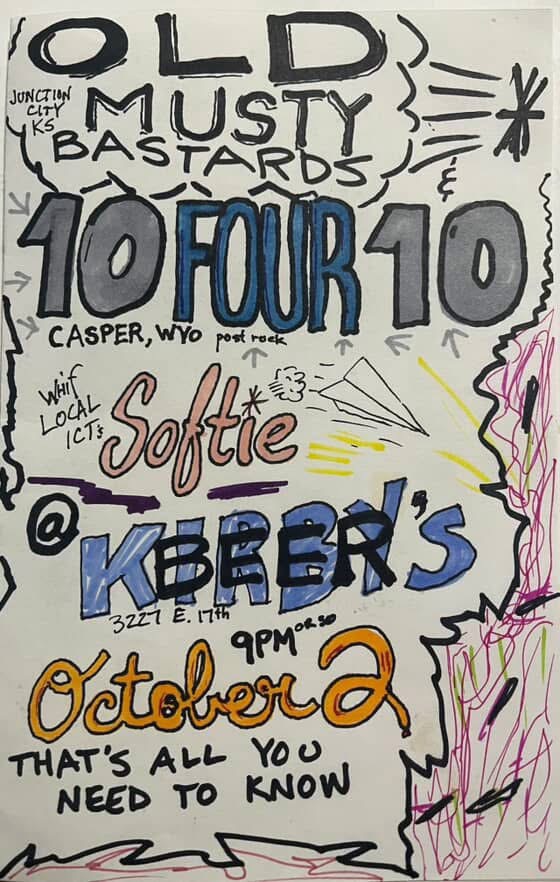 OLD
JUNCTION
CITY
KS
MUSTY
BASTARDS
&
10 FOUR 10
CASPER, WYO post rock
WHIF
LOCAL
ICT's
Softie
@ KIRBY'S
BEER
3227 E. 17th
9PM OR SO
October 2
THAT'S ALL YOU
NEED TO KNOW